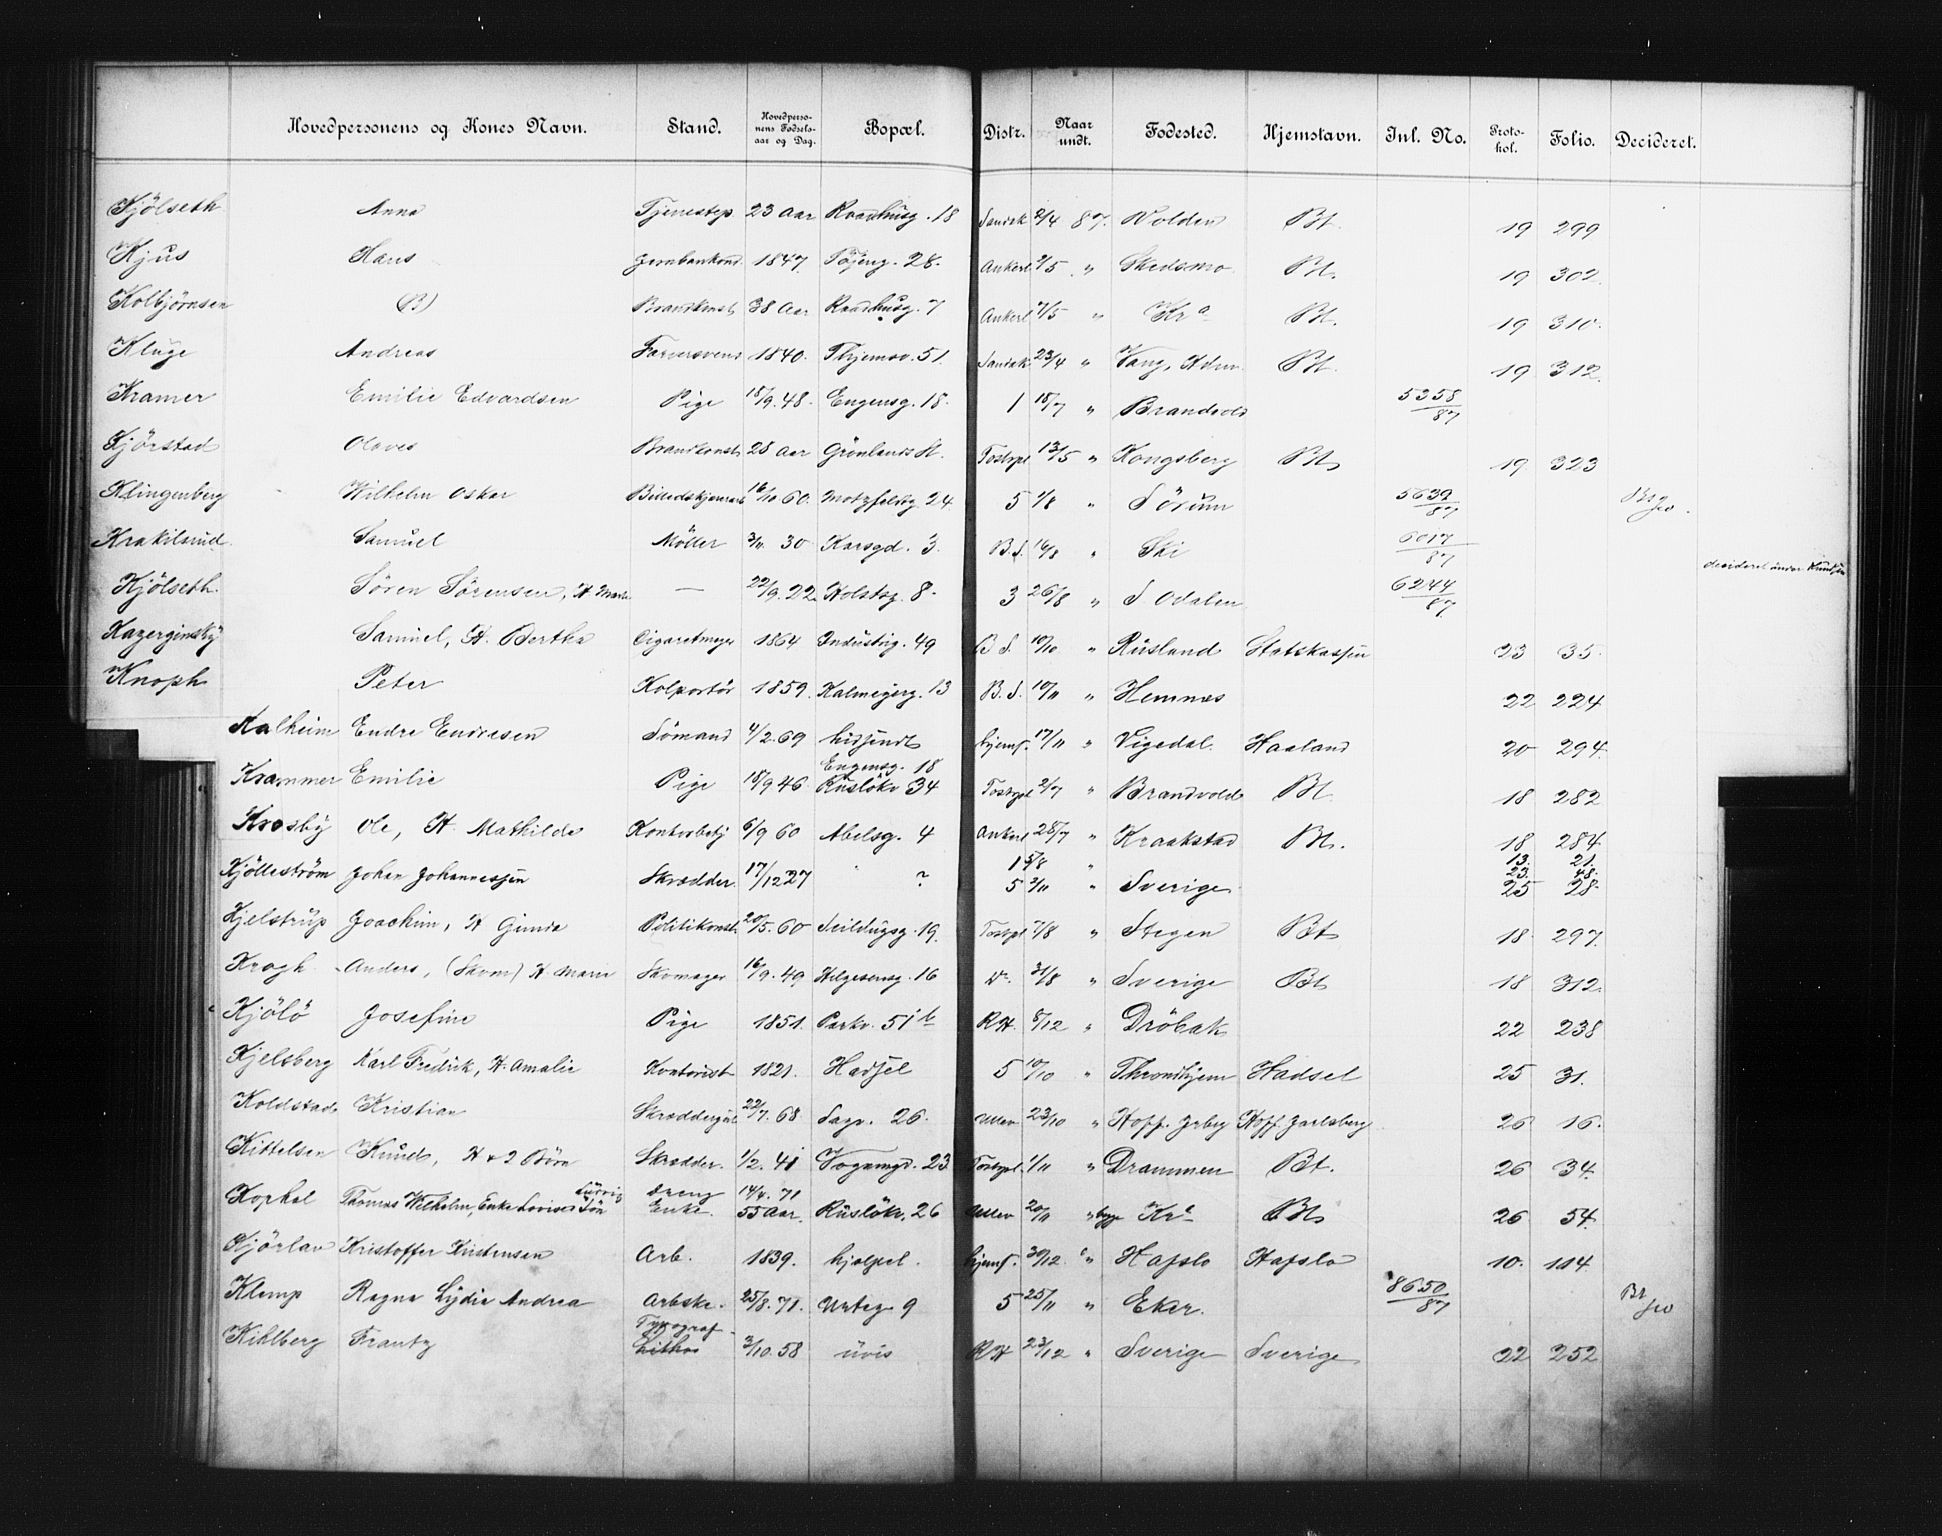 Hovedpersonens og Kones Navn. Stand. Hovedperso-nens Fødsels-aar og Dag. Bopæl. Distr. Naar undt. Fødested. Hjemstavn. Inl. No. Proto-kol. Folio. Decideret.
Kjölseth Anna Tjenestep 23 Aar Raadhusg. 18 2/4 87. Bt. 19 299
Kjus Hans 1847. Töjeng. 28. Ankerl 2/5 " Skedsmo Bt. 19 302
Kolbjörnsen (B) Brandkonst 38 Aar Raadhusg. 7 Ankerl 7/5 " Kra Bt. 19 310
Kluge Andreas Farversvend 1840. Thjemsv. 51. 23/4 " Vang, Bt. 19 312
Kramer Emilie Edvardsen Pige 18/9. 48. Engensg. 18. 1 18/7 " Brandvold 5358/87
Kjörstad Olaves Brandkonst 28 Aar Grönlands St. Tostrpl 13/5 " Kongsberg Bt 19 323
Klingenberg Wilhelm Oskar 16/10 60. Motzfeldtg. 24. 5 1/8 " Sörum 5639/87
Krakilsrud Samuel Möller 3/11 30 Karsgd. 3. B. S. 16/8 " Ski 6017/87 decideret under Knudsen
Kjölseth Sören Sörensen, H. Marie — 22/9. 22. Holstsg. 8. 3 26/8 " S. Odalen 6244/87
Kazerginsky Samuel, H. Bertha Cigaretmager 1864 Industrig. 49 B. S. 10/10 " Rusland Statskassen 23 35.
Knoph Peter Kolportör 1859. Kalmeyerg. 13 B. S. 10/11 " Hemnæs 22 224
Kalheim Endre Endresen Sömand 4/2. 69 hidsendt hjemf. 17/11 " Vigedal. Haaland 20 294.
Krammer Emilie Pige 18/9 46 Engensg. 18 Rusløkv 34 Tostrpl 2/7 " Brandvold Bt 18 282
Krosby Ole, H. Mathilde Kontorbetj 6/9 60 Abelsg. 4 Ankerl 28/7 " Kraakstad Bt. 18 284
Kjölleström Johan Johannessen Skrædder. 17/12 27 " ? 1 5/8 " 13. 21.
23. 48.
5 3/11 " Sverige 25 28.
Kjelstrup Joachim, H Gunda Politikonst. 20/5. 60 Seildugsg. 19. Tostrpl. 7/8 " Stegen Bt 18 297.
Krogh Anders, (Skom) H. Marie Skomager 16/9. 49 Helgesensg. 16 31/8 " Sverige Bt 18 312.
Kjölö Josefine Pige 1851. Parkv. 51 b RH. 8/12 " Dröbak 22 238
Kjelsberg Karl Fredrik, H. Amalie Kontorist 1821. Hadsel 5 10/10 " Throndhjem Hadsel 25 31.
Koldstad Kristian 22/7. 68. Sagv. 26. Ullev 23/10 " Hoff. Jrbg Hoff Jarlsberg 26 16.
Kittelsen Knud, H & 2 Börn Skrædder. 1/2. 41 Vognmgd. 23 Tostrpl. 1/11 " Drammen Bt. 26 34.
Kophel Thomas Wilhelm, Enke Lovise Ludvig Sön dreng Enke. 14/4. 71 55 Aar. Rusløkv. 26 Ullev 20/11 " begge Kra Bt 26 54.
Kjörlav Kristoffer Kristensen Arb. 1839. hjemf. 30/12 " Hafslo Hafslo 10. 114.
Klemp Ragna Lydia Andrea Arbske. 25/8. 71. Urteg. 9 5 25/11 " Eker. 8650/87
Kihlberg Frantz Typograf Litho 3/10. 58 uvis RH 23/12 " Sverige Sverige 22 252